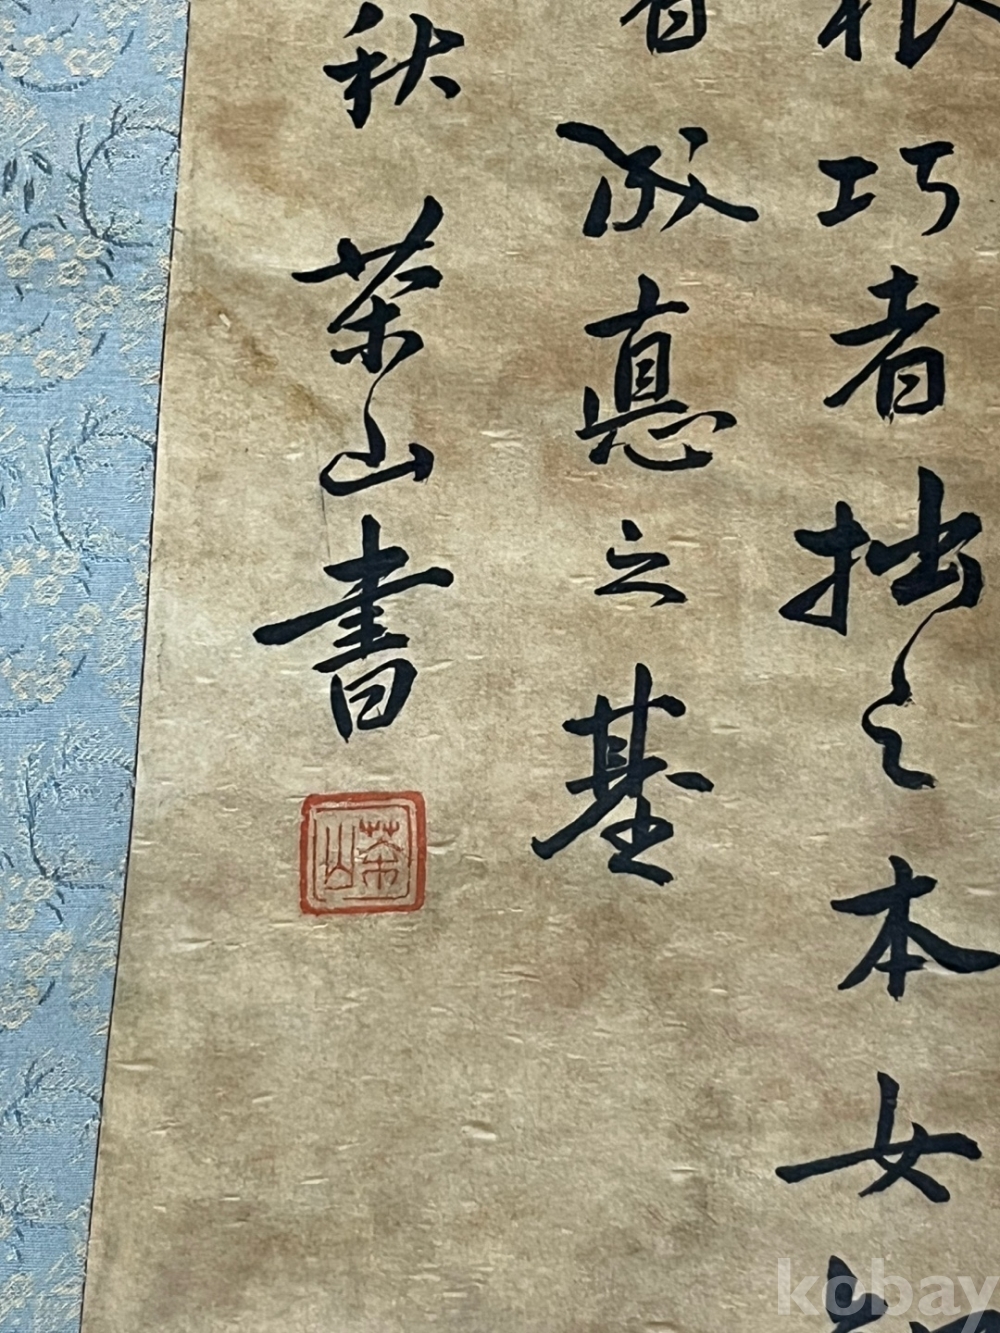 巧者拙之本女
成悳之基
秋 茶山書
茶山
kobay